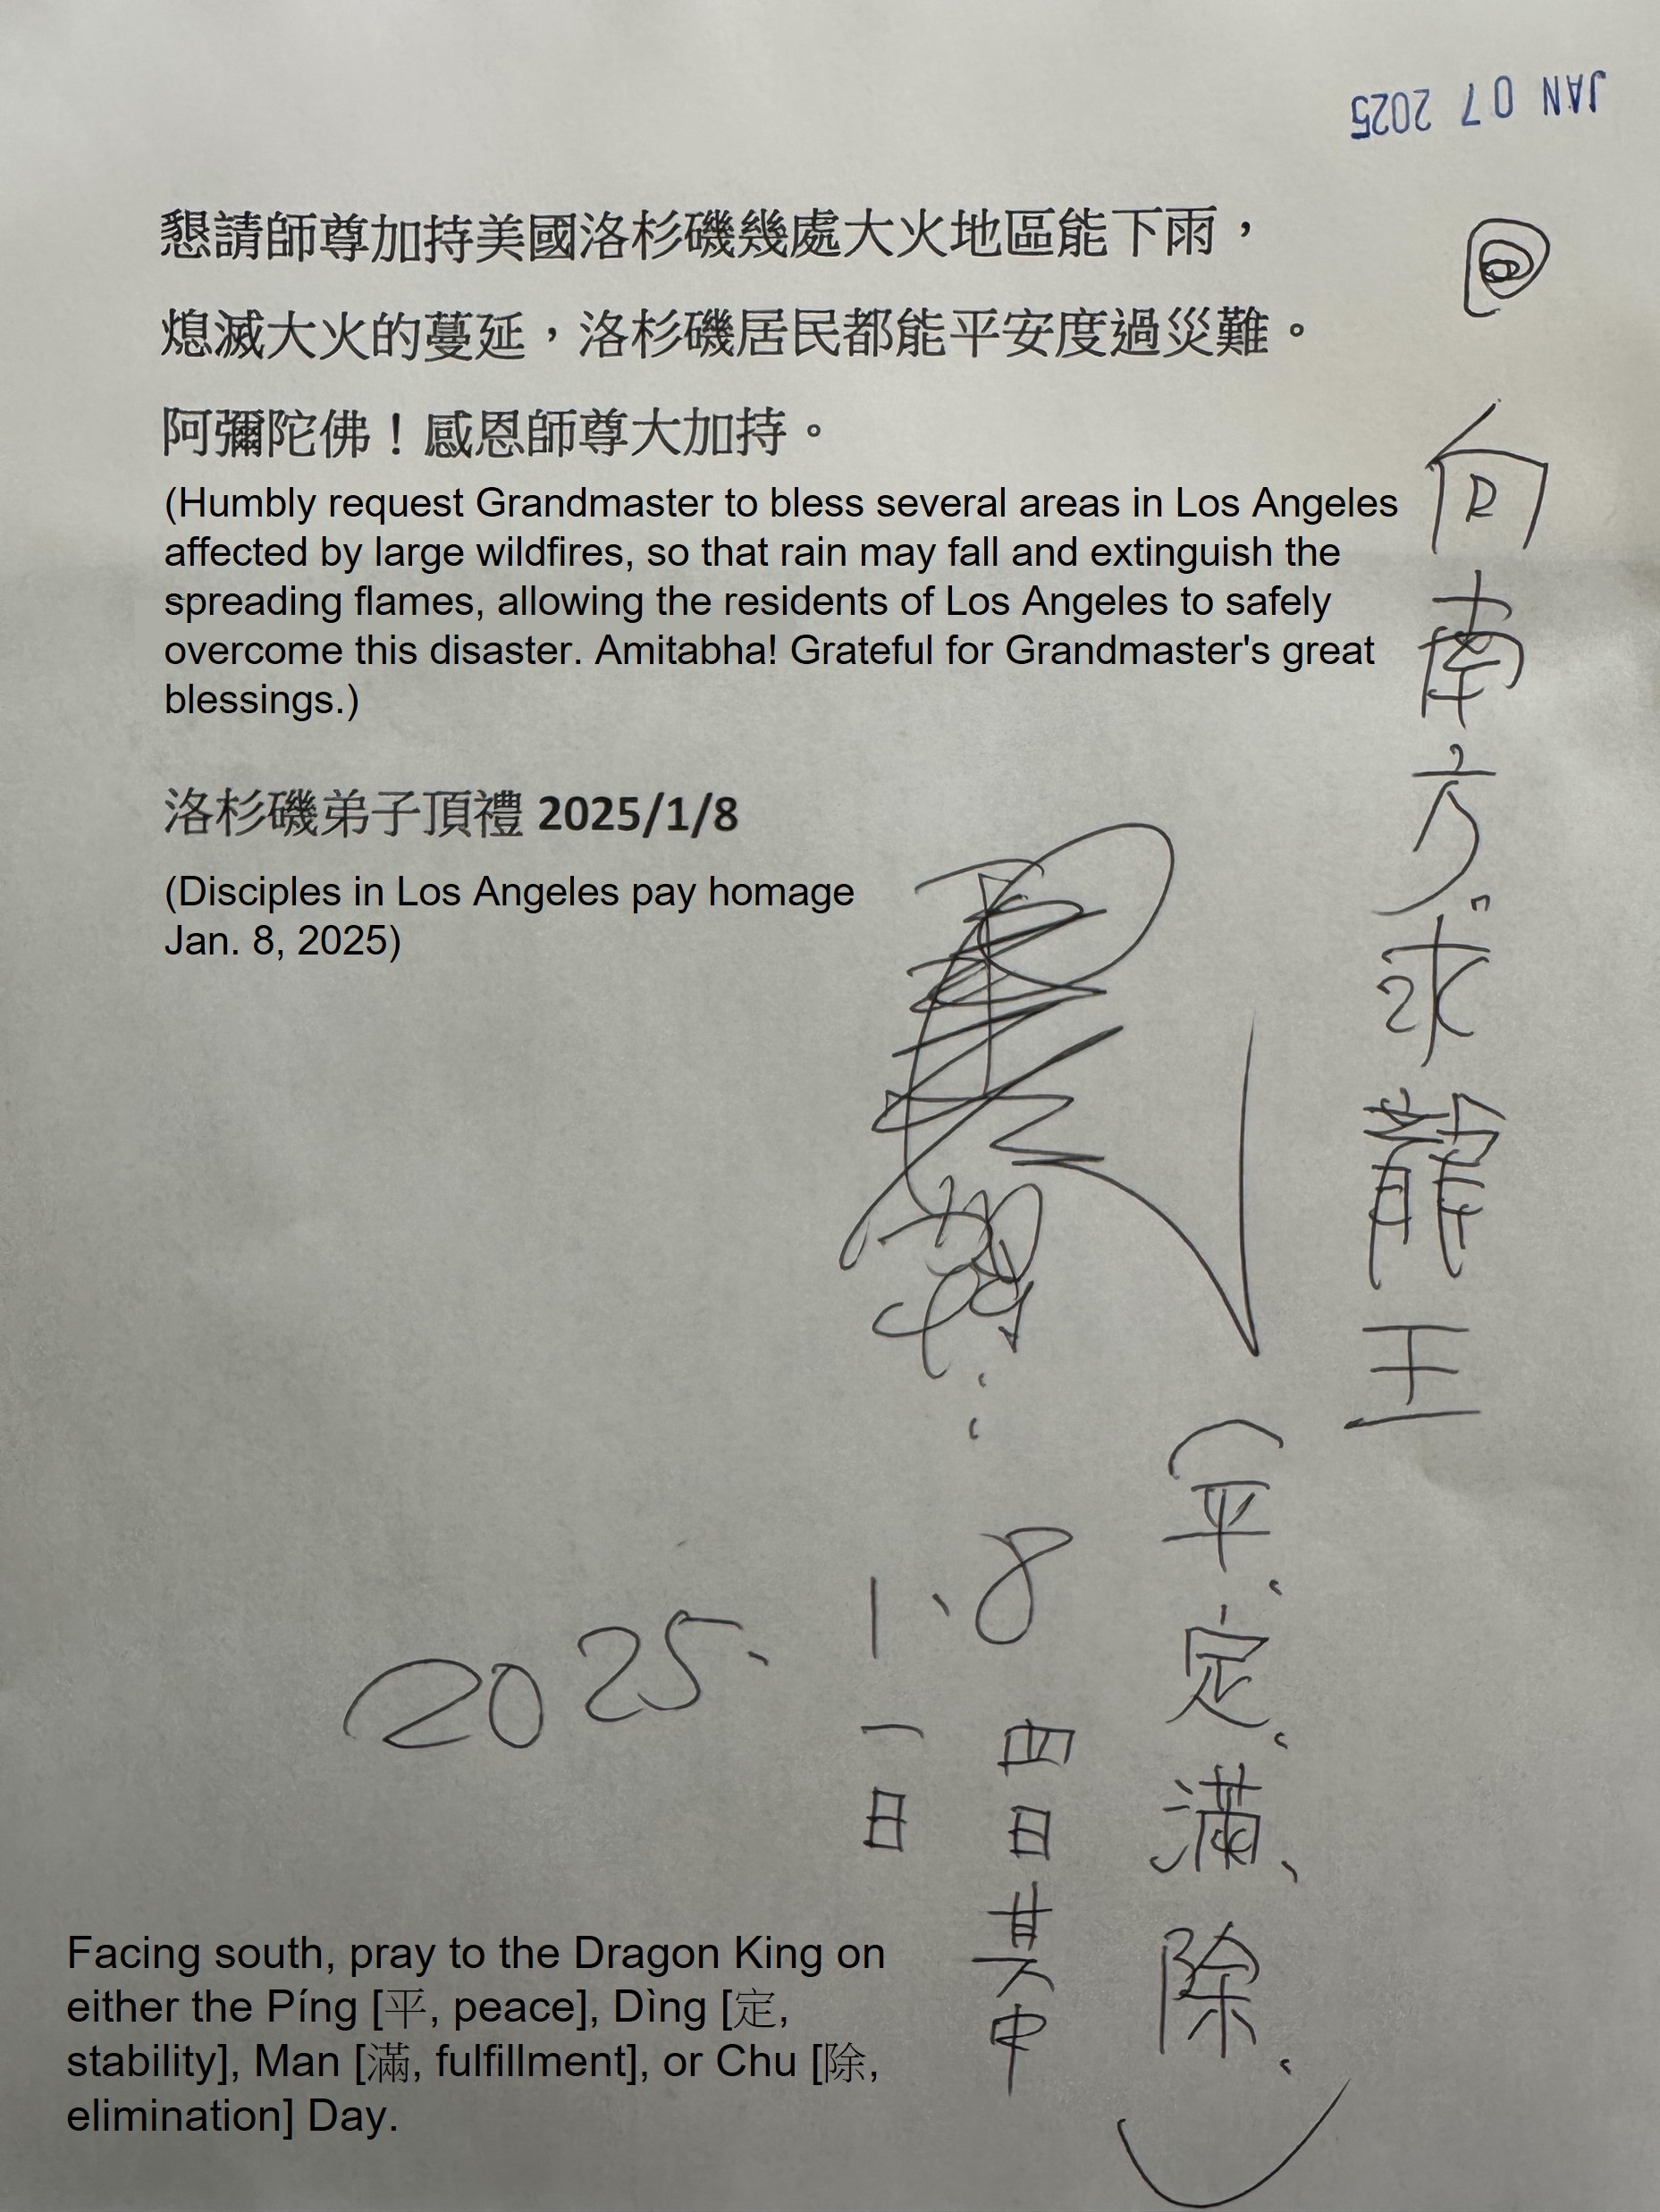 JAN 07 2025
懇請師尊加持美國洛杉磯幾處大火地區能下雨，
熄滅大火的蔓延，洛杉磯居民都能平安度過災難。
阿彌陀佛！感恩師尊大加持。
(Humbly request Grandmaster to bless several areas in Los Angeles
affected by large wildfires, so that rain may fall and extinguish the
spreading flames, allowing the residents of Los Angeles to safely
overcome this disaster. Amitabha! Grateful for Grandmaster's great
blessings.)
洛杉磯弟子頂禮 2025/1/8
(Disciples in Los Angeles pay homage
Jan. 8, 2025)
向南方求龍王
(平、定、滿、除、)
四日其中
一日
2025、1、8
Facing south, pray to the Dragon King on
either the Píng [平, peace], Dìng [定,
stability], Man [滿, fulfillment], or Chu [除,
elimination] Day.